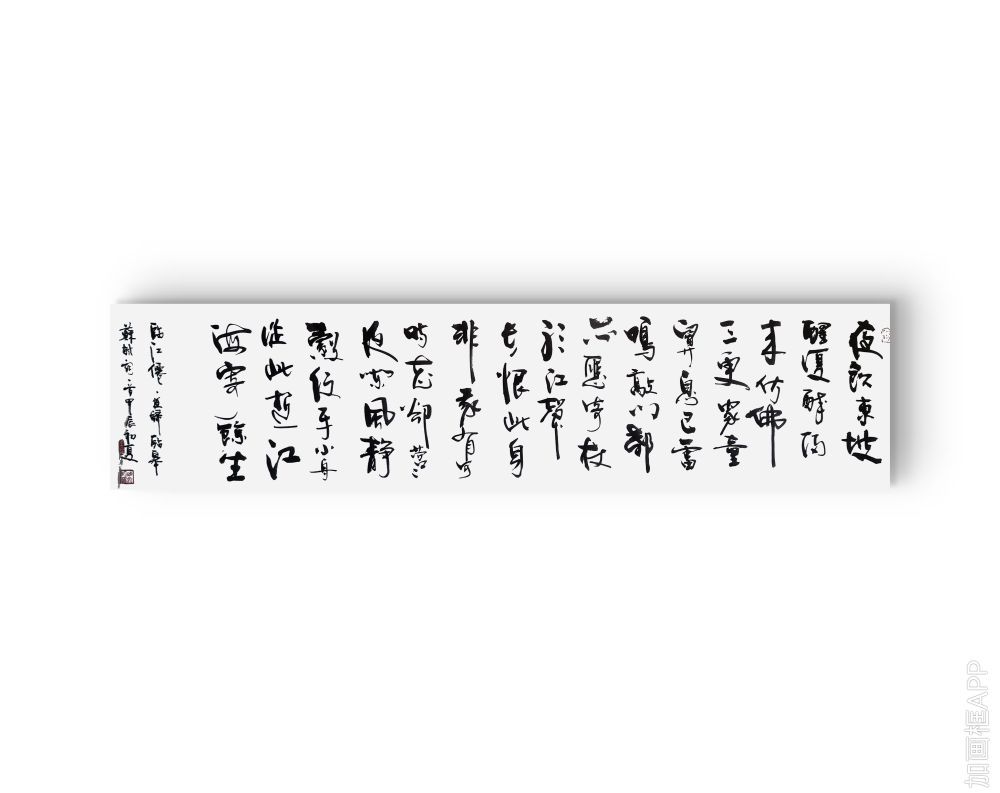 夜飲東坡
醒復醉歸
來仿佛
三更家童
鼻息已雷
鳴敲門都
不應倚杖
聽江聲
長恨此身
非我有何
時忘卻營營
夜闌風靜
縠紋平小舟
從此逝江
海寄餘生
臨江僊·夜歸臨皋
蘇軾詞·甲辰初夏
加画框APP